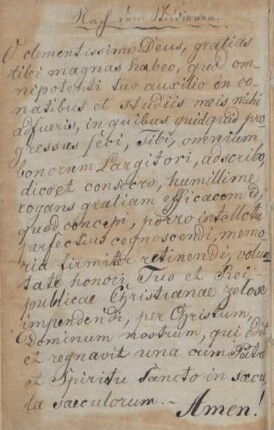 Nach dem Studieren.
O clementissime Deus, gratias
tibi magnas habeo, quod om-
nipotenti tuo auxilio in co-
natibus et studiis meis mihi
adfueris, in quibus quidquid pro
gressus feci, Tibi, omnium
bonorum Largitori, adscribo,
dico et consecro, humillime
rogans gratiam efficacem id,
quod concepi, porro intellectu
perfectius cognoscendi, memo
ria firmiter retinendi, volun
tate honori Tuo et Rei
publicae Christianae zelose
impendendi, per Christum
Dominum nostrum, qui
et regnavit una cum Patre
et Spiritu Sancto in saecu
la saeculorum. - Amen!